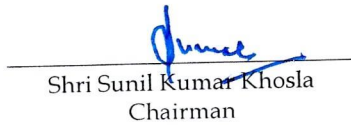 Shri Sunil Kumar Khosla
Chairman